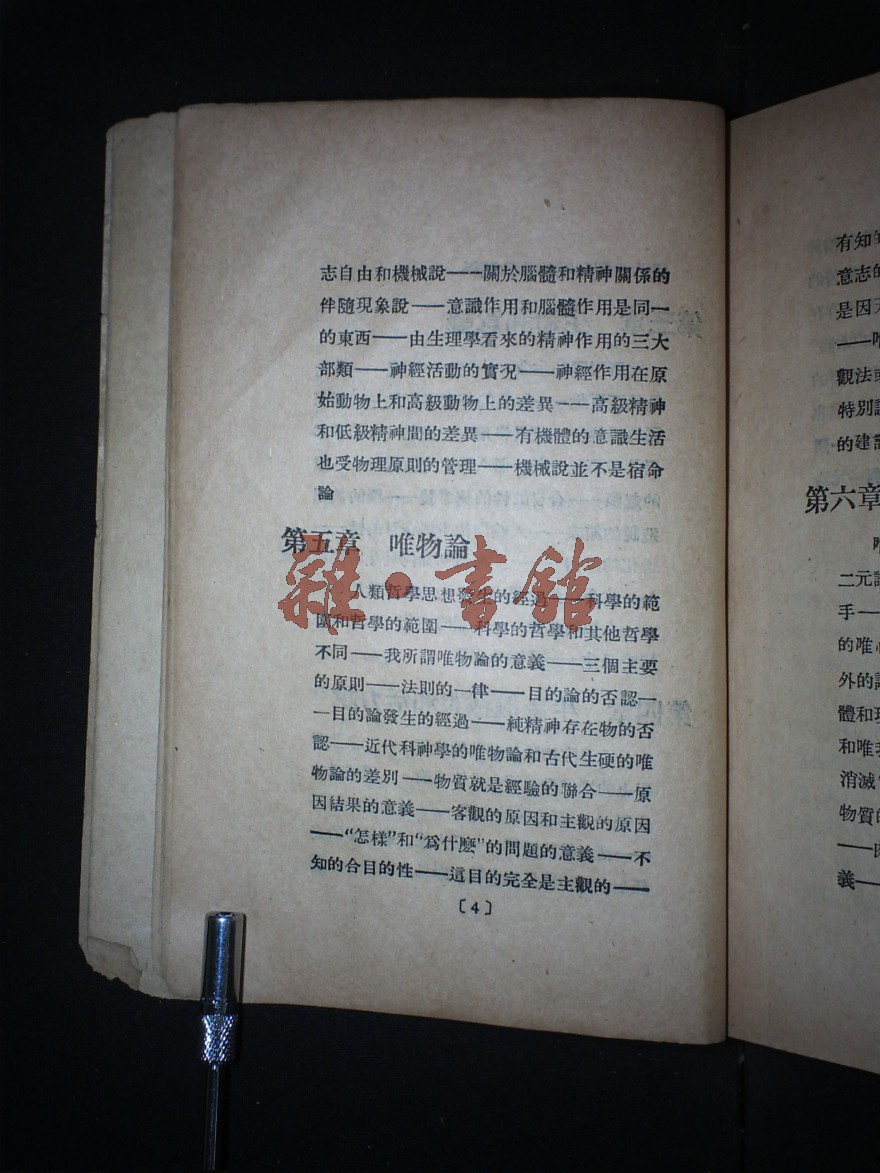 志自由和機械說——關於腦髓和精神關係的
伴隨現象說——意識作用和腦髓作用是同一
的東西——由生理學看來的精神作用的三大
部類——神經活動的實況——神經作用在原
始動物上和高級動物上的差異——高級精神
和低級精神間的差異——有機體的意識生活
也受物理原則的管理——機械說並不是宿命
論
第五章 唯物論
人類哲學思想發生的經過——科學的範
圍和哲學的範圍——科學的哲學和其他哲學
不同——我所謂唯物論的意義——三個主要
的原則——法則的一律——目的論的否認—
—目的論發生的經過——純精神存在物的否
認——近代科神學的唯物論和古代生硬的唯
物論的差別——物質就是經驗的聯合——原
因結果的意義——客觀的原因和主觀的原因
——“怎樣”和“爲什麽”的問題的意義——不
知的合目的性——這目的完全是主觀的——
〔4〕
雜·書館
有知
意志的
是因
——
觀法
特別
的建
第六章
二元
手——
的唯
外的
體和
和唯
消滅
物質的
——
義——